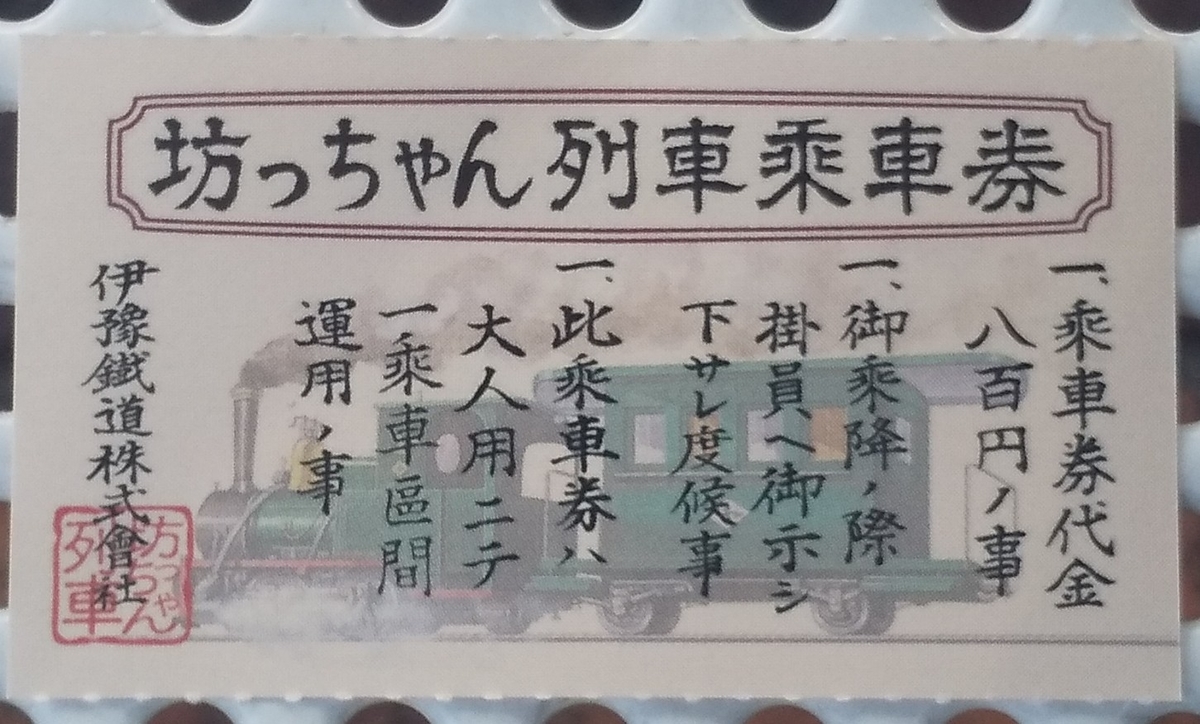 坊っちゃん列車乗車券
一、乗車券代金
八百円ノ事
一、御乗降ノ際
掛員へ御示シ
下サレ度候事
一、此乗車券ハ
大人用ニテ
一乗車區間
運用ノ事
伊豫鐵道株式會社
坊っちゃん
列車